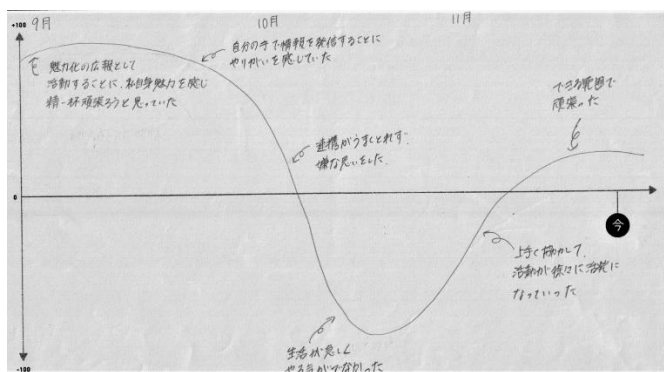 +100
9月
10月
11月
魅力化の広報として
活動することに、私自身魅力を感じ
精一杯頑張ろうと思っていた
自分の手で情報を発信することに
やりがいを感じていた
連携がうまくとれず、
嫌な思いをした。
できる範囲で
頑張った
0
今
上手く協力して、
活動が徐々に活発に
なっていった
生活が忙しく
やる気がでなかった
-100